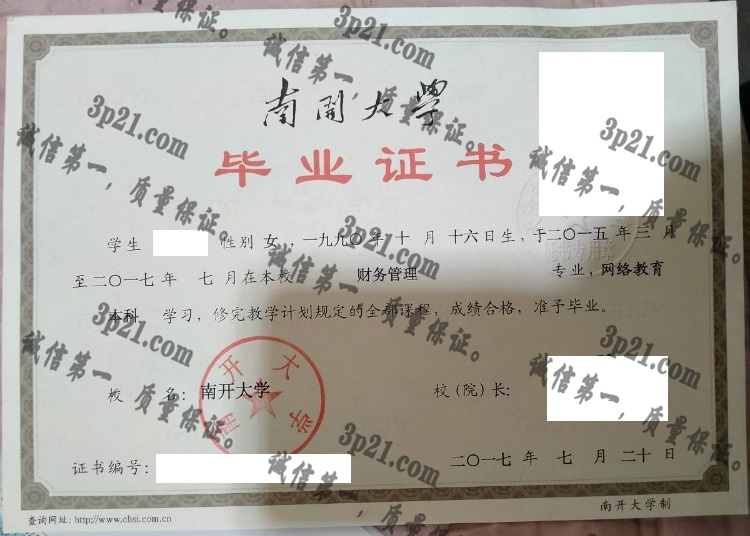 南开大学
毕业证书
学生 性别 女 ，一九九〇 年 十 月 十六日生，于二〇一五 年 三 月
至二〇一七 年 七 月在本校 财务管理 专业，网络教育
本科 学习，修完教学计划规定的全部课程，成绩合格，准予毕业。
校 名：南开大学
校（院）长：
南开大学
证书编号：
二〇一七 年 七 月 二十 日
查询网址：http://www.chsi.com.cn
南开大学制
3p21.com
诚信第一，质量保证。
3p21.com
诚信第一，质量保证。
3p21.com
诚信第一，质量保证。
3p21.com
诚信第一，质量保证。
3p21.com
诚信第一，质量保证。
3p21.com
诚信第一，质量保证。
3p21.com
诚信第一，质量保证。